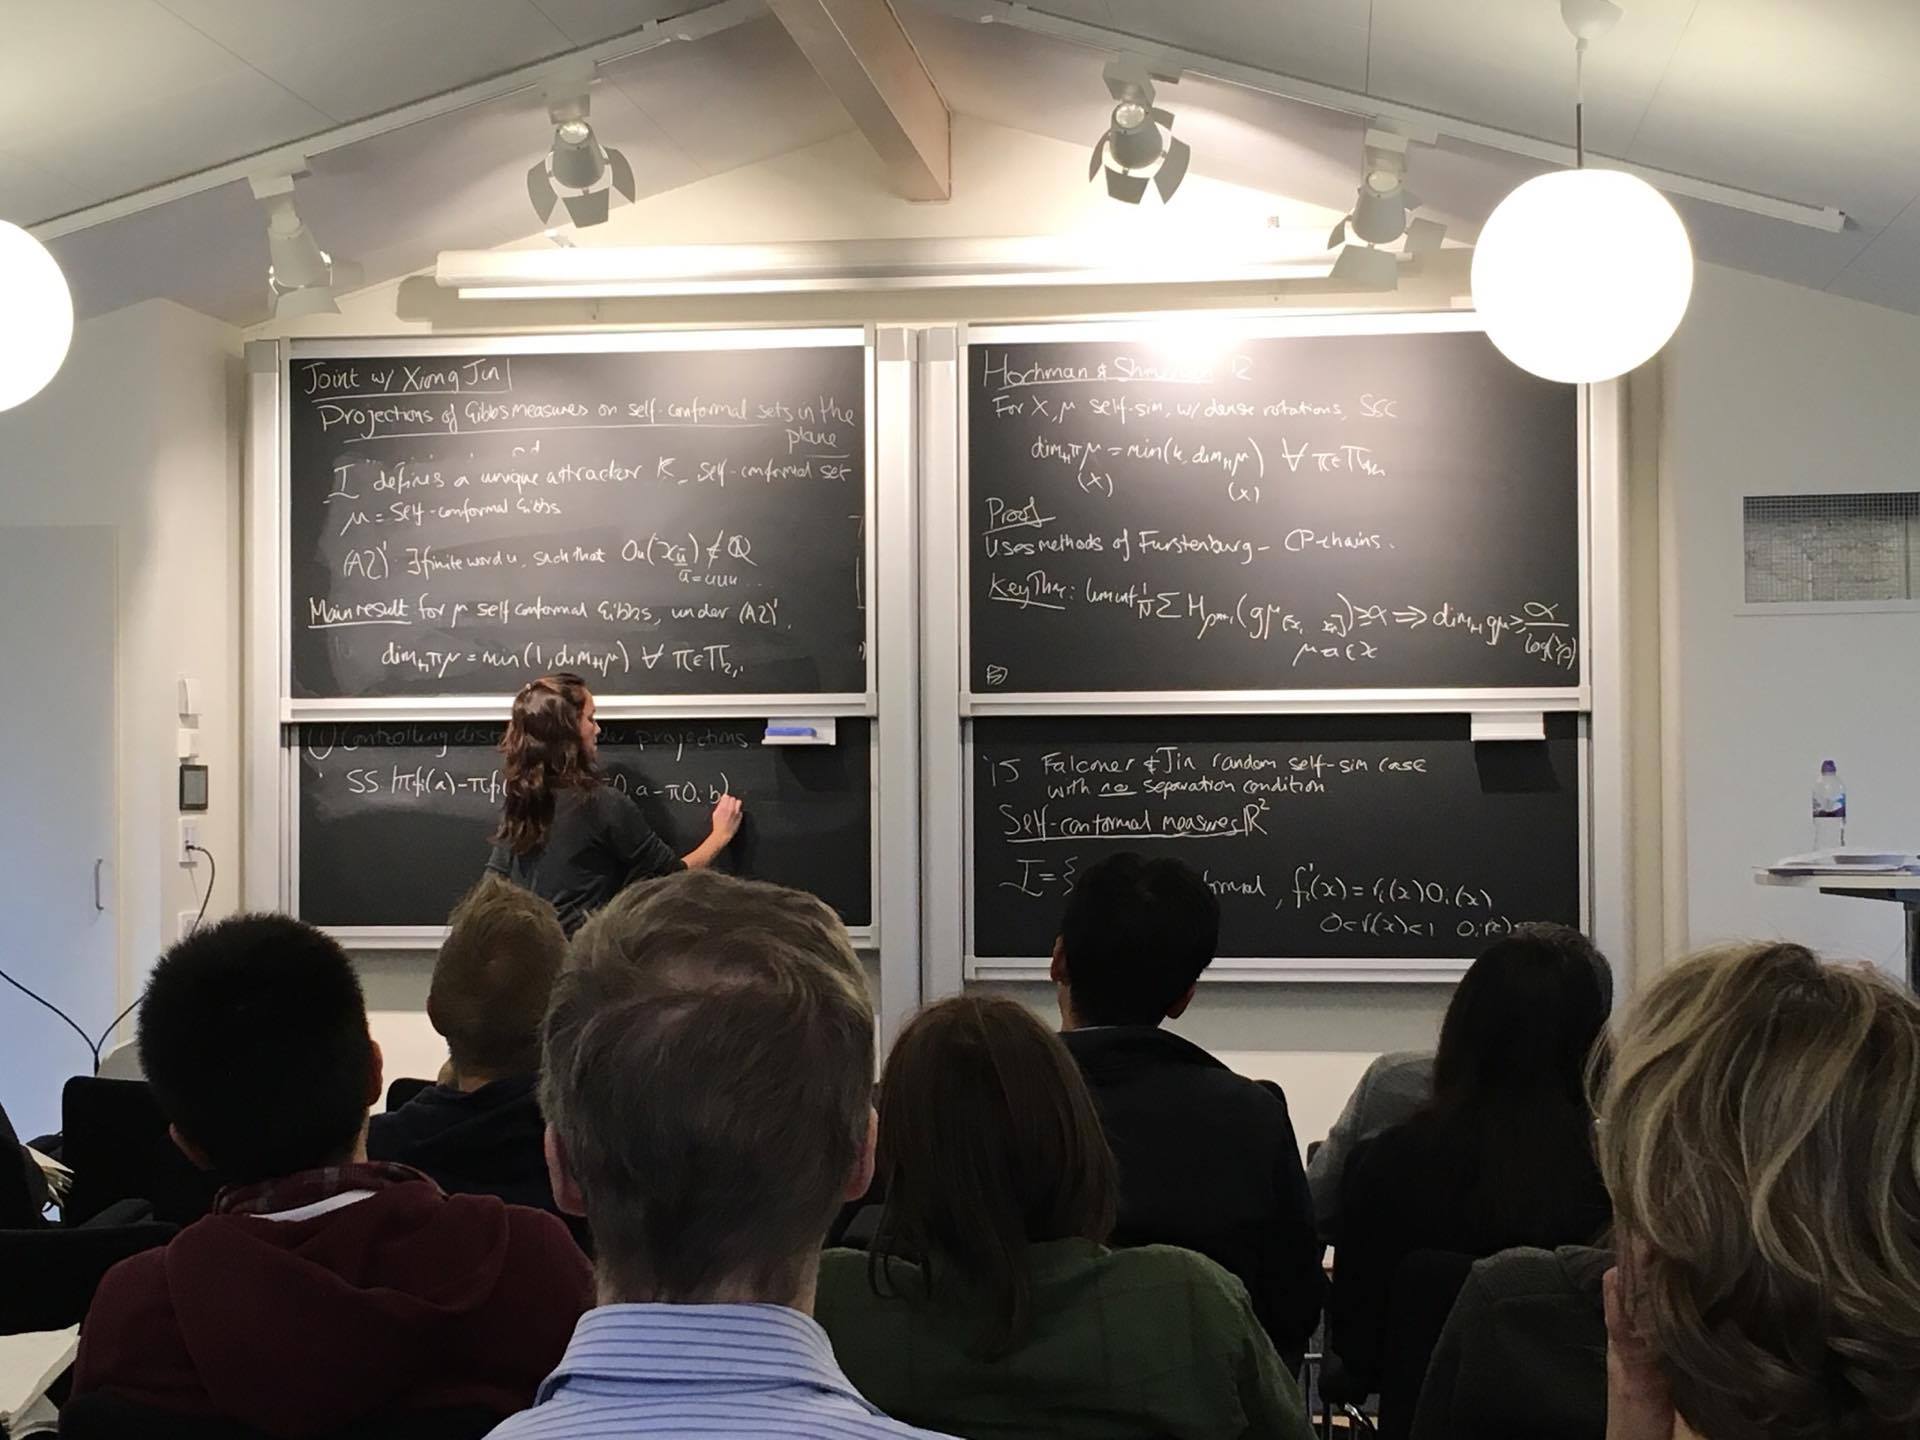 Joint w/ Xiong Jin
Projections of Gibbs measures on self-conformal sets in the
plane
I defines a unique attractor K - self-conformal set
μ = self-conformal Gibbs
(A2)' ∃ finite word u, such that Ou(xū) ∉ ℚ
ū = uuu...
Main result for μ self conformal Gibbs, under (A2)',
dim_H πμ = min(1, dim_H μ) ∀ π ∈ Π₂,₁
Controlling projections
SS |πfi(a) - πfi( a - πOi b)
Hochman &
For X, μ self-sim, w/ dense rotations, SSC
dim_H πμ = min(k, dim_H μ) ∀ π ∈ Π
(X) (X)
Proof
Uses methods of Furstenburg - CP-chains.
Key Thm: liminf 1/N Σ H (gμ[x₁ xₙ]) ≥ α ⇒ dim_H gμ ≥ α/log(1/ρ)
μ-a.e x
'15 Falconer & Jin random self-sim case
with no separation condition
Self-conformal measures ℝ²
I = { , fi'(x) = ri(x)Oi(x)
0<ri(x)<1 Oi(x)